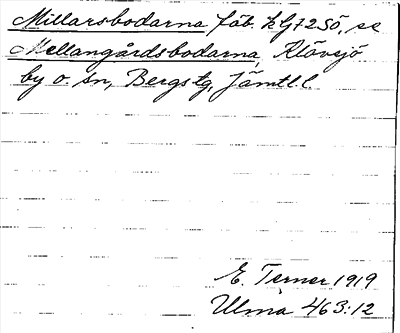 Millarsbodarna fäb. hG72SÖ, se
Mellangårdsbodarna, Klövsjö
by o. sn, Bergs tg, Jämtl. l.
E. Terner 1919
Ulma 463:12